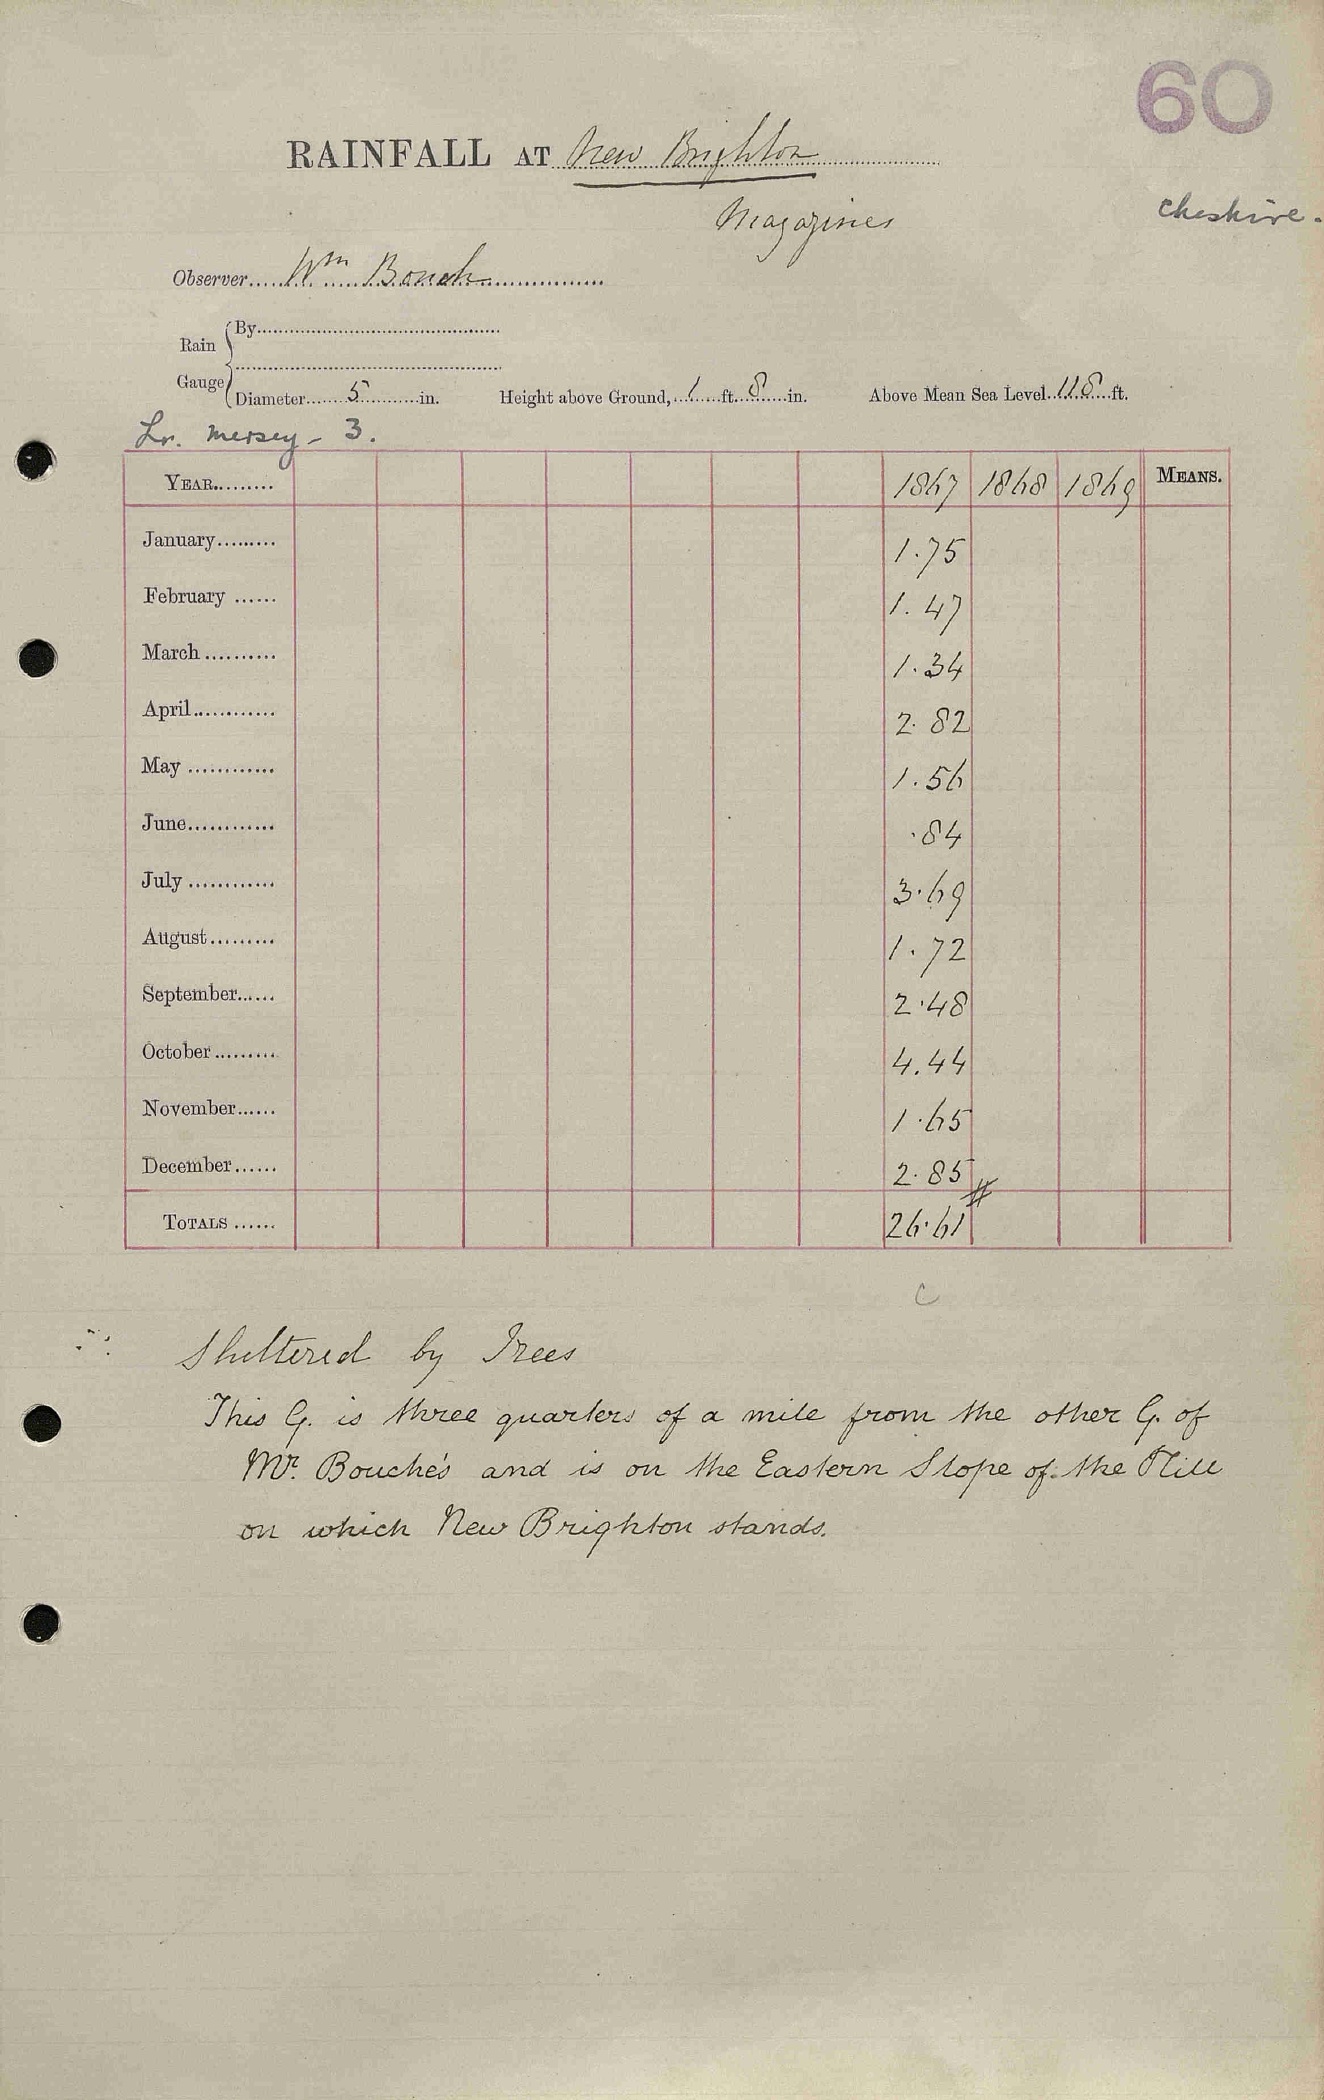 60
RAINFALL AT New Brighton
Magazines
Cheshire.
Observer Wm Bouch
Rain Gauge
By
Diameter 5 in. Height above Ground, 1 ft. 8 in. Above Mean Sea Level 118 ft.
Lr. Mersey - 3.
YEAR 1867 1868 1869 MEANS.
January 1.75
February 1.47
March 1.34
April 2.82
May 1.56
June .84
July 3.69
August 1.72
September 2.48
October 4.44
November 1.65
December 2.85
TOTALS 26.61 #
C
Sheltered by Trees
This G. is three quarters of a mile from the other G. of
Mr. Bouche's and is on the Eastern Slope of the Hill
on which New Brighton stands.